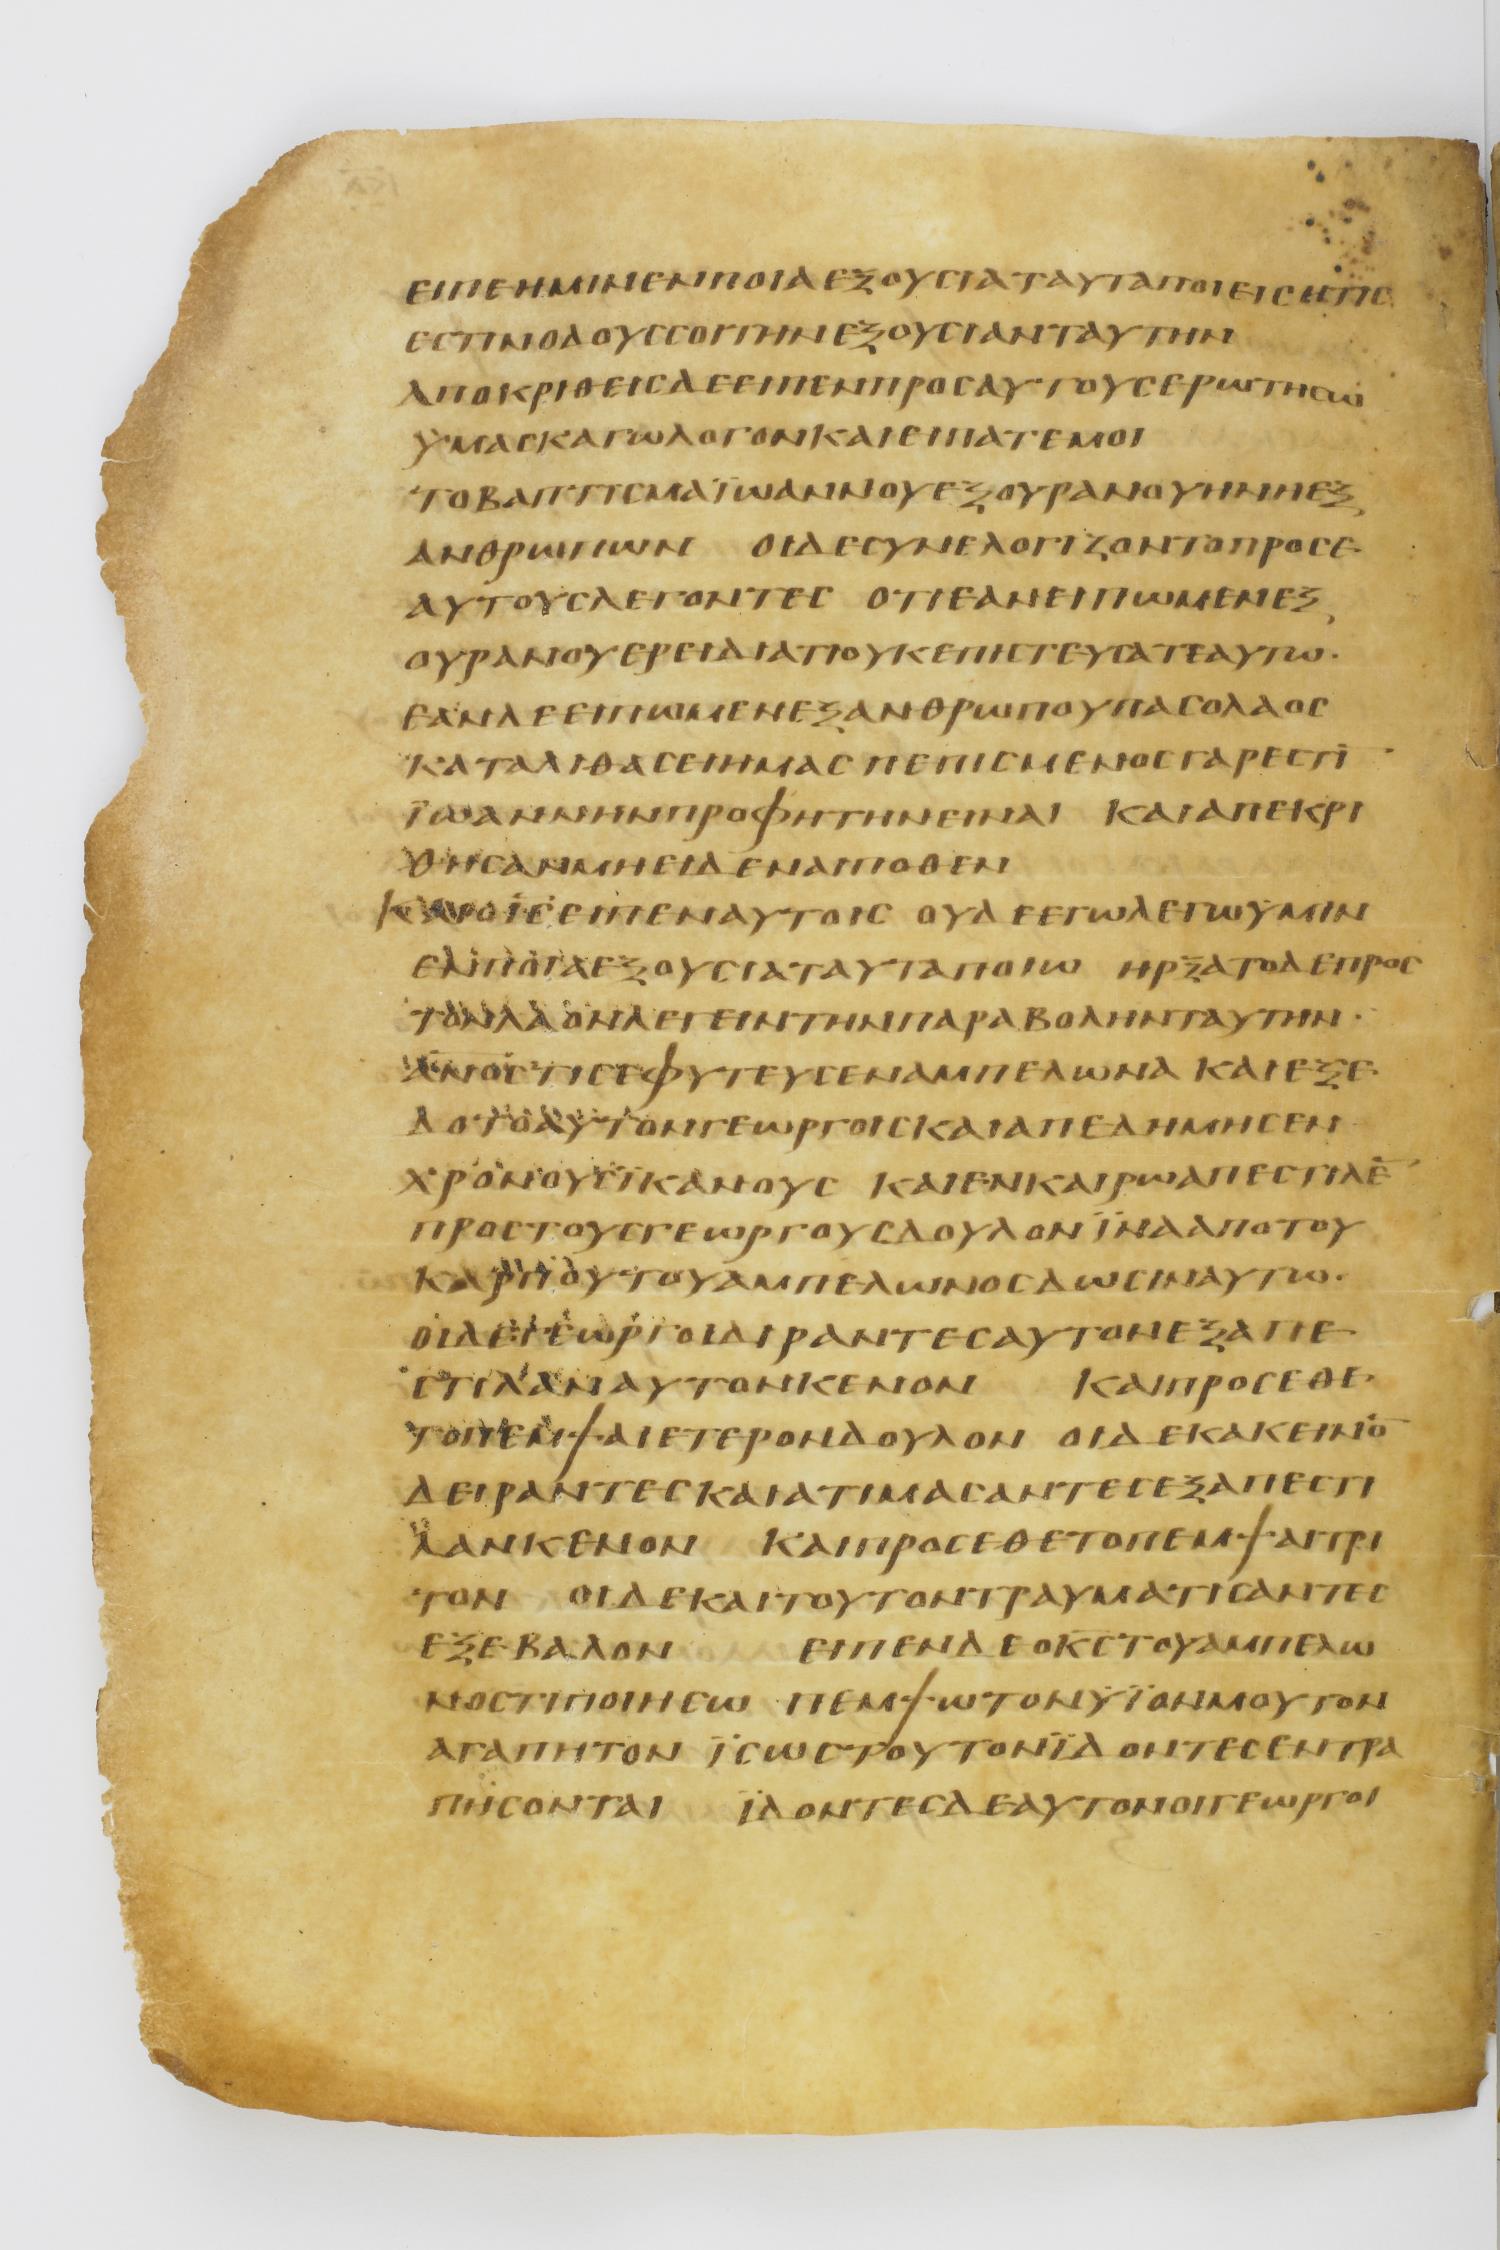 ΕΙΠΕΗΜΙΝΕΝΠΟΙΑΕΞΟΥΣΙΑΤΑΥΤΑΠΟΙΕΙΣΗΤΙΣ
ΕΣΤΙΝΟΔΟΥΣΣΟΙΤΗΝΕΞΟΥΣΙΑΝΤΑΥΤΗΝ
ΑΠΟΚΡΙΘΕΙΣΔΕΕΙΠΕΝΠΡΟΣΑΥΤΟΥΣΕΡΩΤΗΣΩ
ΫΜΑΣΚΑΓΩΛΟΓΟΝΚΑΙΕΙΠΑΤΕΜΟΙ
ΤΟΒΑΠΤΙΣΜΑΪΩΑΝΝΟΥΕΞΟΥΡΑΝΟΥΗΝΗΕΞ
ΑΝΘΡΩΠΩΝ ΟΙΔΕΣΥΝΕΛΟΓΙΖΟΝΤΟΠΡΟΣΕ
ΑΥΤΟΥΣΛΕΓΟΝΤΕΣ ΟΤΙΕΑΝΕΙΠΩΜΕΝΕΞ
ΟΥΡΑΝΟΥΕΡΕΙΔΙΑΤΙΟΥΚΕΠΙΣΤΕΥΣΑΤΕΑΥΤΩ·
ΕΑΝΔΕΕΙΠΩΜΕΝΕΞΑΝΘΡΩΠΟΥΠΑΣΟΛΑΟΣ
ΚΑΤΑΛΙΘΑΣΕΙΗΜΑΣ ΠΕΠΙΣΜΕΝΟΣΓΑΡΕΣΤΙ̅
ΪΩΑΝΝΗΝΠΡΟΦΗΤΗΝΕΙΝΑΙ ΚΑΙΑΠΕΚΡΙ
ΘΗΣΑΝΜΗΕΙΔΕΝΑΙΠΟΘΕΝ
ΚΑΙΟΙ̅Σ̅ΕΙΠΕΝΑΥΤΟΙΣ ΟΥΔΕΕΓΩΛΕΓΩΫΜΙΝ
ΕΝΠΟΙΑΕΞΟΥΣΙΑΤΑΥΤΑΠΟΙΩ ΗΡΞΑΤΟΔΕΠΡΟΣ
ΤΟΝΛΑΟΝΛΕΓΕΙΝΤΗΝΠΑΡΑΒΟΛΗΝΤΑΥΤΗΝ·
Α̅Ν̅Ο̅Σ̅ΤΙΣΕΦΥΤΕΥΣΕΝΑΜΠΕΛΩΝΑ ΚΑΙΕΞΕ
ΔΟΤΟΑΥΤΟΝΓΕΩΡΓΟΙΣΚΑΙΑΠΕΔΗΜΗΣΕΝ
ΧΡΟΝΟΥΣΪΚΑΝΟΥΣ ΚΑΙΕΝΚΑΙΡΩΑΠΕΣΤΙΛΕ̅
ΠΡΟΣΤΟΥΣΓΕΩΡΓΟΥΣΔΟΥΛΟΝΪΝΑΑΠΟΤΟΥ
ΚΑΡΠΟΥΤΟΥΑΜΠΕΛΩΝΟΣΔΩΣΙΝΑΥΤΩ·
ΟΙΔΕΓΕΩΡΓΟΙΔΙΡΑΝΤΕΣΑΥΤΟΝΕΞΑΠΕ
ΣΤΙΛΑΝΑΥΤΟΝΚΕΝΟΝ ΚΑΙΠΡΟΣΕΘΕ
ΤΟΠΕΜΨΑΙΕΤΕΡΟΝΔΟΥΛΟΝ ΟΙΔΕΚΑΚΕΙΝΟ̅
ΔΕΙΡΑΝΤΕΣΚΑΙΑΤΙΜΑΣΑΝΤΕΣΕΞΑΠΕΣΤΙ
ΛΑΝΚΕΝΟΝ ΚΑΙΠΡΟΣΕΘΕΤΟΠΕΜΨΑΙΤΡΙ
ΤΟΝ ΟΙΔΕΚΑΙΤΟΥΤΟΝΤΡΑΥΜΑΤΙΣΑΝΤΕΣ
ΕΞΕΒΑΛΟΝ ΕΙΠΕΝΔΕΟΚ̅Σ̅ΤΟΥΑΜΠΕΛΩ
ΝΟΣΤΙΠΟΙΗΣΩ ΠΕΜΨΩΤΟΝΫΪΟΝΜΟΥΤΟΝ
ΑΓΑΠΗΤΟΝ ΪΣΩΣΤΟΥΤΟΝΪΔΟΝΤΕΣΕΝΤΡΑ
ΠΗΣΟΝΤΑΙ ΪΔΟΝΤΕΣΔΕΑΥΤΟΝΟΙΓΕΩΡΓΟΙ